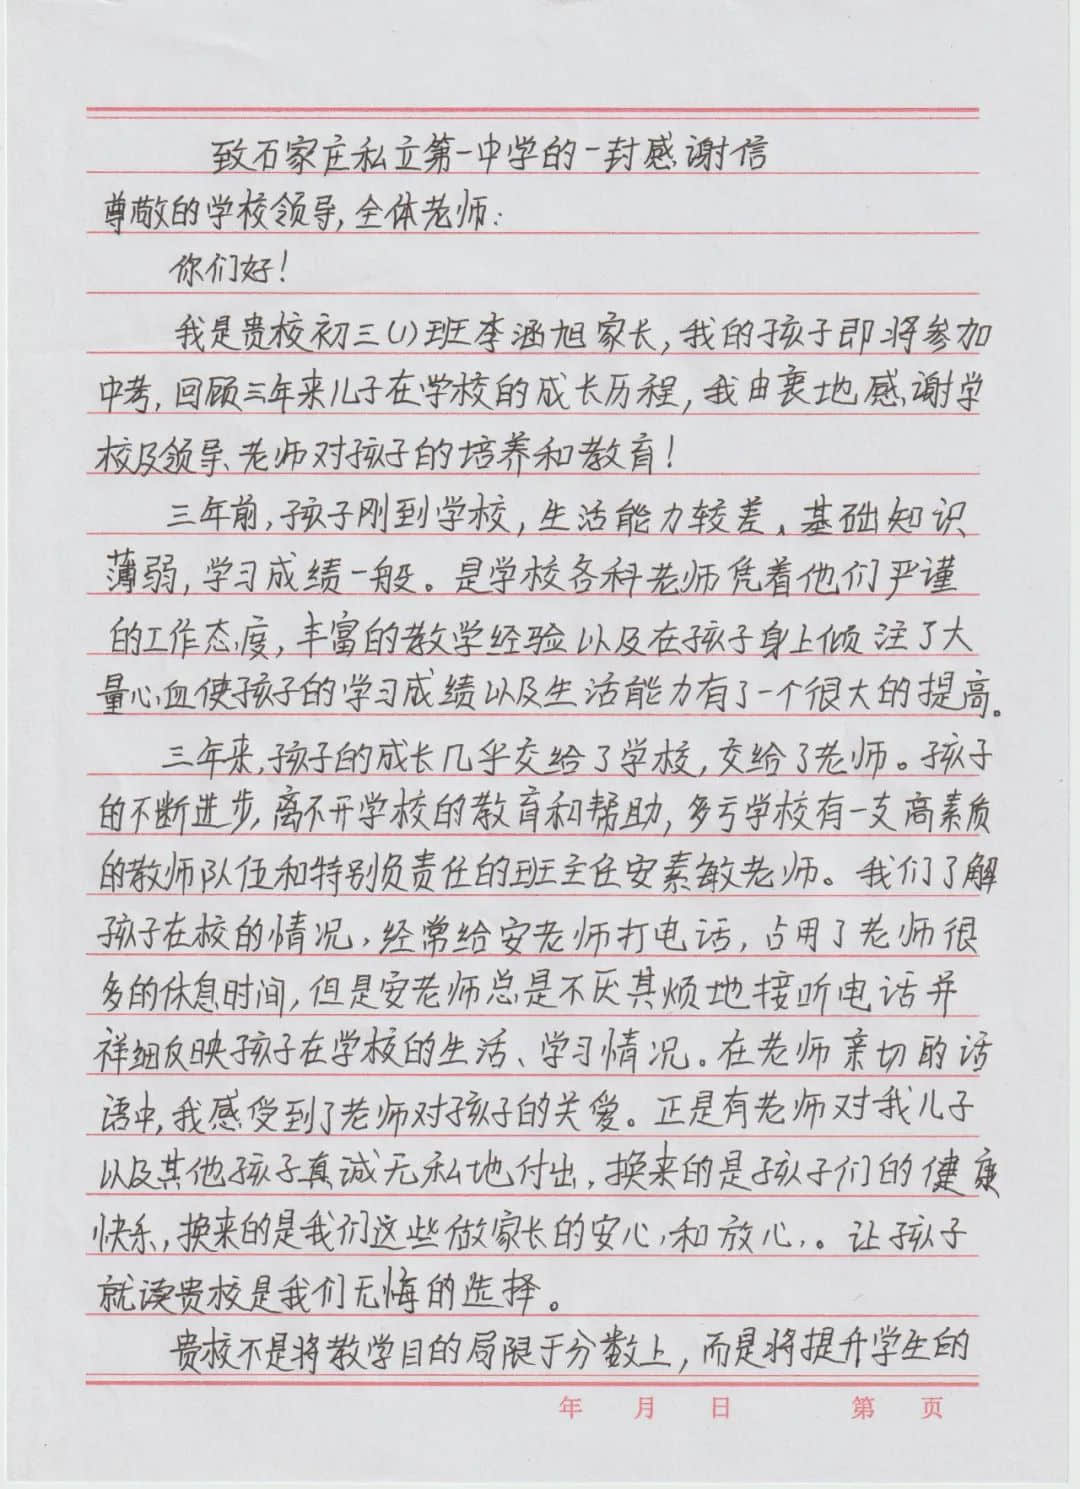 致石家庄私立第一中学的一封感谢信
尊敬的学校领导,全体老师:
你们好!
我是贵校初三(1)班李涵旭家长,我的孩子即将参加
中考,回顾三年来儿子在学校的成长历程,我由衷地感谢学
校及领导、老师对孩子的培养和教育!
三年前,孩子刚到学校,生活能力较差、基础知识
薄弱,学习成绩一般。是学校各科老师凭着他们严谨
的工作态度,丰富的教学经验以及在孩子身上倾注了大
量心血使孩子的学习成绩以及生活能力有了一个很大的提高。
三年来,孩子的成长几乎交给了学校,交给了老师。孩子
的不断进步,离不开学校的教育和帮助,多亏学校有一支高素质
的教师队伍和特别负责任的班主任安素敏老师。我们了解
孩子在校的情况,经常给安老师打电话,占用了老师很
多的休息时间,但是安老师总是不厌其烦地接听电话并
祥细反映孩子在学校的生活、学习情况。在老师亲切的话
语中,我感受到了老师对孩子的关爱。正是有老师对我儿子
以及其他孩子真诚无私地付出,换来的是孩子们的健康
快乐,换来的是我们这些做家长的安心,和放心,。让孩子
就读贵校是我们无悔的选择。
贵校不是将教学目的局限于分数上,而是将提升学生的
年 月 日 第 页